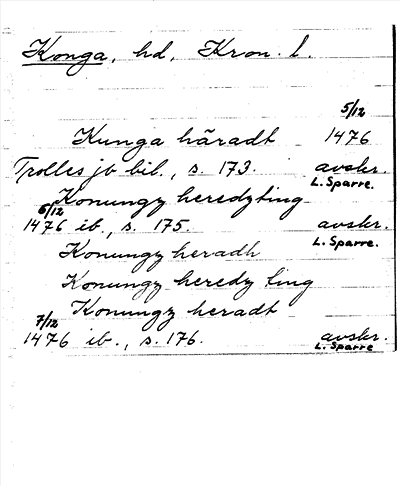 Konga, hd, Kron. l.
5/12
Kunga häradt 1476
Trolles jb bil., s. 173. avskr.
L. Sparre.
Konungz heredzting
6/12
1476 ib., s. 175. avskr.
L. Sparre.
Konungz heradh
Konungz heredz ting
Konungz heradt
7/12
1476 ib., s. 176. avskr.
L. Sparre